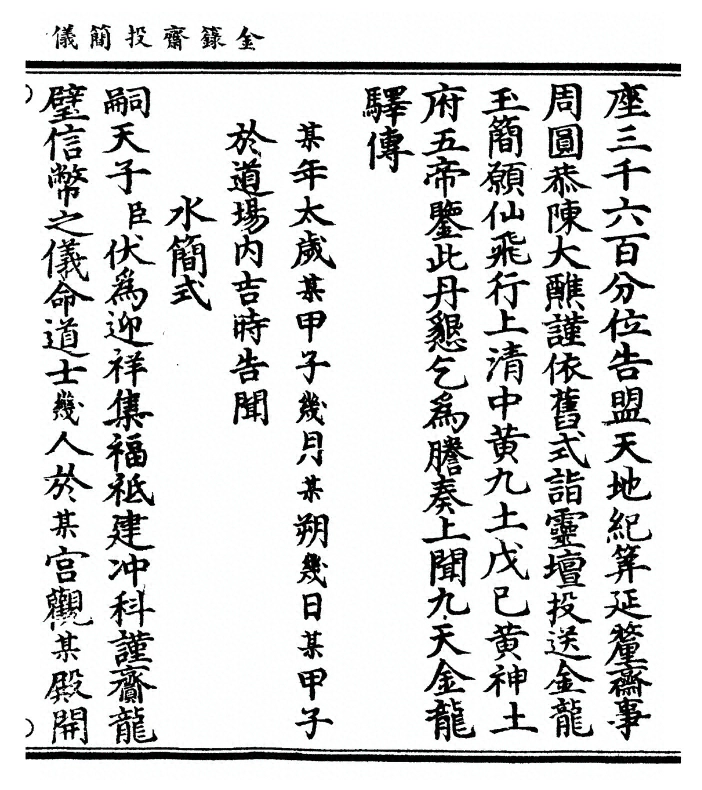 金籙齋投簡儀
座三千六百分位告盟天地紀筭延釐齋事
周圓恭陳大醮謹依舊式詣靈壇投送金龍
玉簡願仙飛行上清中黃九土戊巳黃神土
府五帝鑒此丹懇乞爲騰奏上聞九天金龍
驛傳
某年太歲某甲子幾月某朔幾日某甲子
於道場内吉時告聞
水簡式
嗣天子臣伏爲迎祥集福祗建冲科謹齎龍
璧信幣之儀命道士幾人於某宫觀某殿開